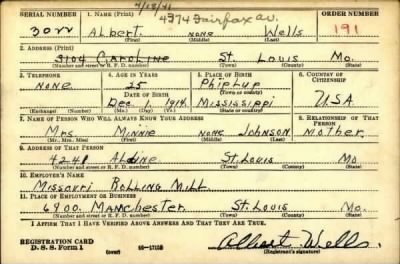 4/15/41
SERIAL NUMBER 1. NAME (Print) 4374 Fairfax av. ORDER NUMBER
3022 Albert none Wells 191
(First) (Middle) (Last)
2. ADDRESS (Print)
3104 CAROLINE ST. LOUIS MO.
(Number and street or R. F. D. number) (Town) (County) (State)
3. TELEPHONE 4. AGE IN YEARS 5. PLACE OF BIRTH 6. COUNTRY OF CITIZENSHIP
NONE 25 PhipLup
DATE OF BIRTH (Town or county)
Dec 1914 Mississippi USA
(Exchange) (Number) (Mo.) (Day) (Yr.) (State or country)
7. NAME OF PERSON WHO WILL ALWAYS KNOW YOUR ADDRESS 8. RELATIONSHIP OF THAT PERSON
Mrs Minnie none Johnson Mother.
(Mr., Mrs., Miss) (First) (Middle) (Last)
9. ADDRESS OF THAT PERSON
4241 St. Louis Mo
(Number and street or R. F. D. number) (Town) (County) (State)
10. EMPLOYER'S NAME
Missouri ROLLING MILL
11. PLACE OF EMPLOYMENT OR BUSINESS
6800. MANChester ST. LOUIS Mo.
(Number and street or R. F. D. number) (Town) (County) (State)
I AFFIRM THAT I HAVE VERIFIED ABOVE ANSWERS AND THAT THEY ARE TRUE.
REGISTRATION CARD
D. S. S. Form 1 (over) 16-17105 Albert Wells.
(Registrant's signature)